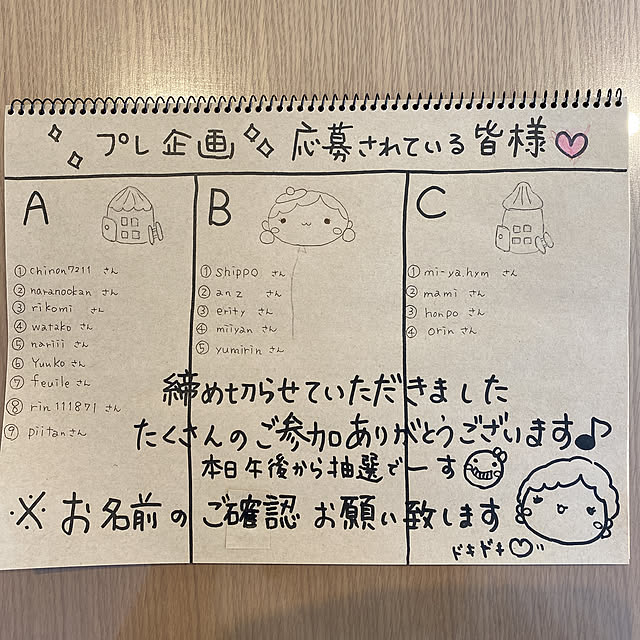 プレ企画 応募されている皆様
A
① chinon7211 さん
② naranookan さん
③ rikomi さん
④ watako さん
⑤ nariii さん
⑥ Yunko さん
⑦ feuile さん
⑧ rin111871 さん
⑨ piitanさん
B
① shippo さん
② anz さん
③ erity さん
④ miiyan さん
⑤ yumirin さん
C
① mi-ya.hym さん
② mami さん
③ honpo さん
④ orin さん
締め切らせていただきました
たくさんのご参加ありがとうございます♪
本日午後から抽選でーす
※ お名前の ご確認 お願い致します
ドキドキ♡